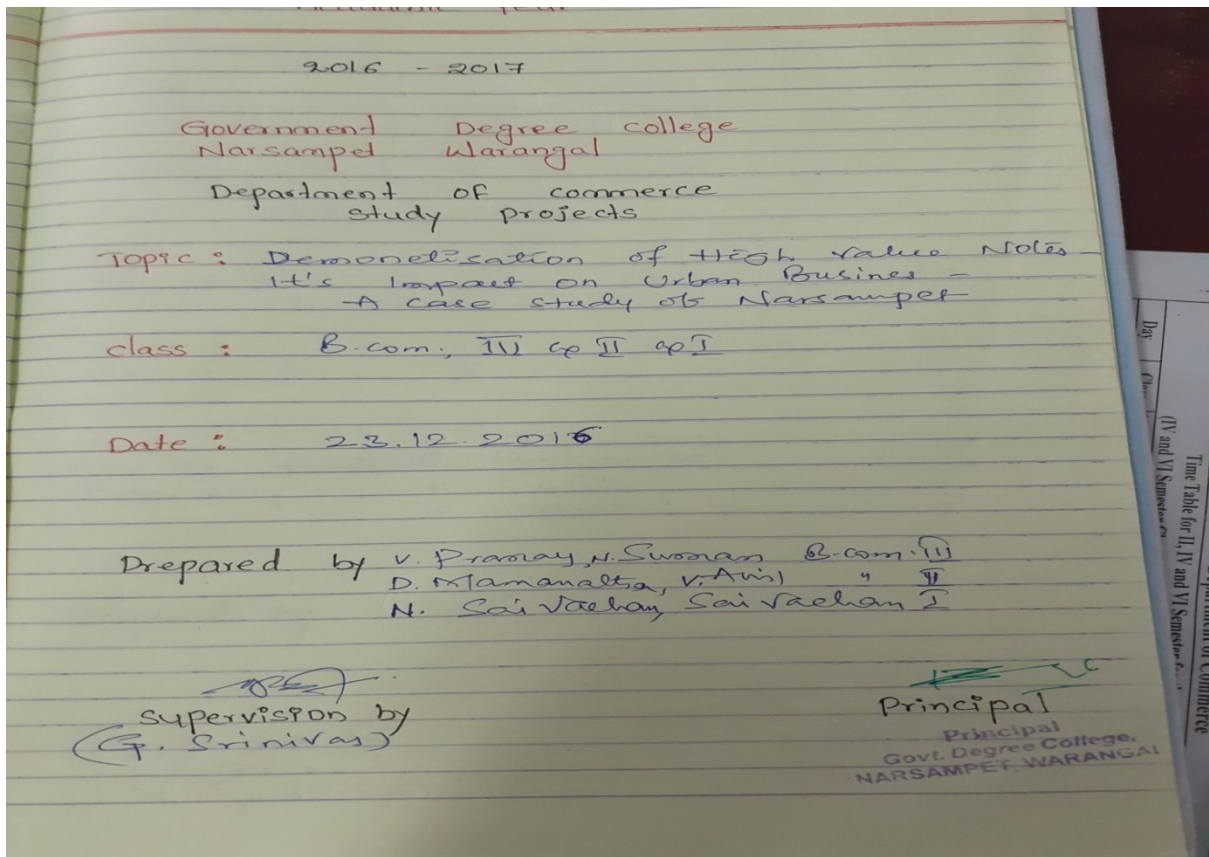 Academic Year
2016 - 2017
Government Degree college
Narsampet Warangal
Department of commerce
study projects
Topic : Demonetisation of High value Notes -
It's Impact on Urban Busines -
A case study of Narsampet
class : B.com., III & II & I
Date : 23.12.2016
Prepared by V. Pranay, N. Suman B.com. III
D. V. " II
N. Sai Vachan, Sai Vachan I
supervision by
(G. Srinivas)
Principal
Principal
Govt. Degree College,
NARSAMPET, WARANGAL
Day
(IV and VI Semester
Time Table for II, IV and VI Semester
Department of Commerce